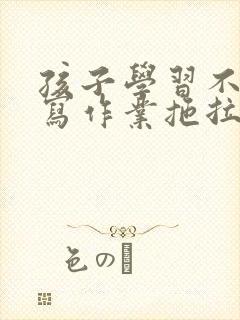 孩子學習不
寫作業拖拉
色の